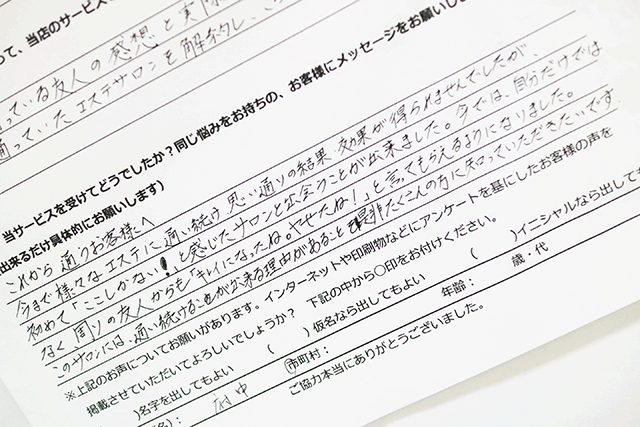 って、当店のサービス
っている友人の感想と実際
通っていたエステサロンを解約し、こ
当サービスを受けてどうでしたか？同じ悩みをお持ちの、お客様にメッセージをお願いし
出来るだけ具体的にお願いします）
これから通うお客様へ
今まで様々なエステに通い続け思い通りの結果・効果が得られませんでしたが、
初めて「ここしかない！」と感じたサロンと出会うことが出来ました。今では、自分だけでは
なく周りの友人からも「キレイになったね。ヤセたね！」と言ってもらえるようになりました。
このサロンには、通い続けることが出来る理由があること是非たくさんの方に知っていただきたいです
※上記のお声についてお願いがあります。インターネットや印刷物などにアンケートを基にしたお客様の声を
掲載させていただいてよろしいでしょうか？　下記の中から○印をお付けください。
）名字を出してもよい　（　）仮名なら出してもよい　（　）イニシャルなら出しても
名）：　府中　市町村：　年齢：　歳・代
ご協力本当にありがとうございました。